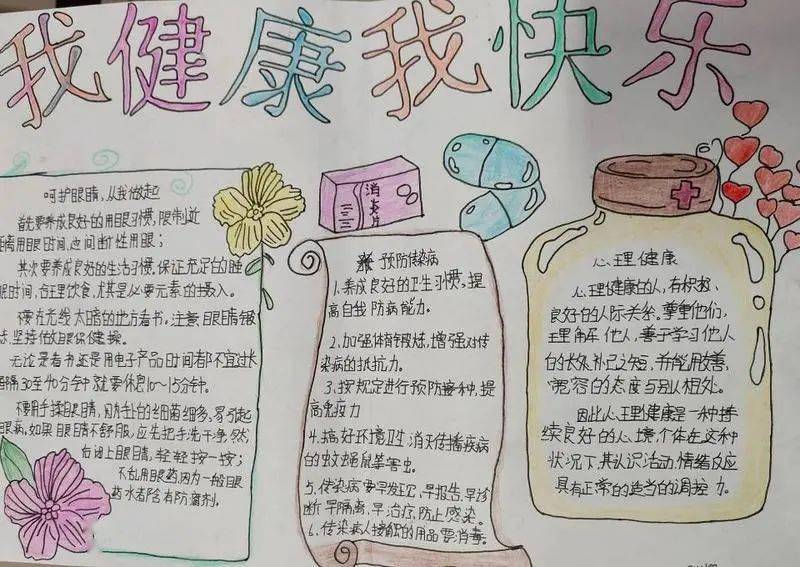 我健康我快乐
呵护眼睛,从我做起
首先要养成良好的用眼习惯,限制近
距离用眼时间,避间断性用眼;
其次要养成良好的生活习惯,保证充足的睡
眠时间,合理饮食,尤其是必要元素的摄入。
不要在光线太暗的地方看书,注意眼睛锻
炼,坚持做眼保健操。
无论是看书还是用电子产品时间都不宜过长
每隔30至40分钟就要休息10~15分钟。
不要用手揉眼睛,因为手上的细菌细多,易引起
眼病,如果眼睛不舒服,应先把手洗干净,然
后闭上眼睛,轻轻按一按;
不乱用眼药,因为一般眼
药水都含有防腐剂。
消炎片
预防传染病
1.养成良好的卫生习惯。提
高自我防病能力。
2.加强体育锻炼,增强对传
染病的抵抗力。
3.按规定进行预防接种,提
高免疫力
4.搞好环境卫生,消灭传播疾病
的蚊蝇鼠等害虫。
5.传染病要早发现,早报告,早诊
断早隔离,早治疗,防止感染。
6.传染病人接触的用品要消毒。
心理健康
心理健康的人,有积极、
良好的人际关系,尊重他们,
理解他人,善于学习他人
的长处补己之短,并能用友善,
宽容的态度与别人相处。
因此心理健康是一种持
续良好的心境,个体在这种
状况下,其认识活动,情绪反应
具有正常的适当的调控力。